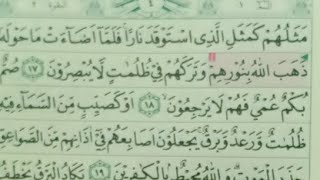 مَثَلُهُمْ كَمَثَلِ الَّذِى اسْتَوْقَدَ نَارًا فَلَمَّا اَضَاءَتْ مَا حَوْلَهُ
ذَهَبَ اللهُ بِنُورِهِمْ وَتَرَكَهُمْ فِى ظُلُمٰتٍ لَا يُبْصِرُونَ ﴿١٧﴾ صُمٌّ
بُكْمٌ عُمْىٌ فَهُمْ لَا يَرْجِعُونَ ﴿١٨﴾ اَوْ كَصَيِّبٍ مِنَ السَّمَاءِ فِيهِ
ظُلُمٰتٌ وَرَعْدٌ وَبَرْقٌ يَجْعَلُونَ اَصَابِعَهُمْ فِى اٰذَانِهِمْ مِنَ الصَّوَاعِقِ
حَذَرَ الْمَوْتِ وَاللهُ مُحِيطٌ بِالْكٰفِرِينَ ﴿١٩﴾ يَكَادُ الْبَرْقُ يَخْطَفُ